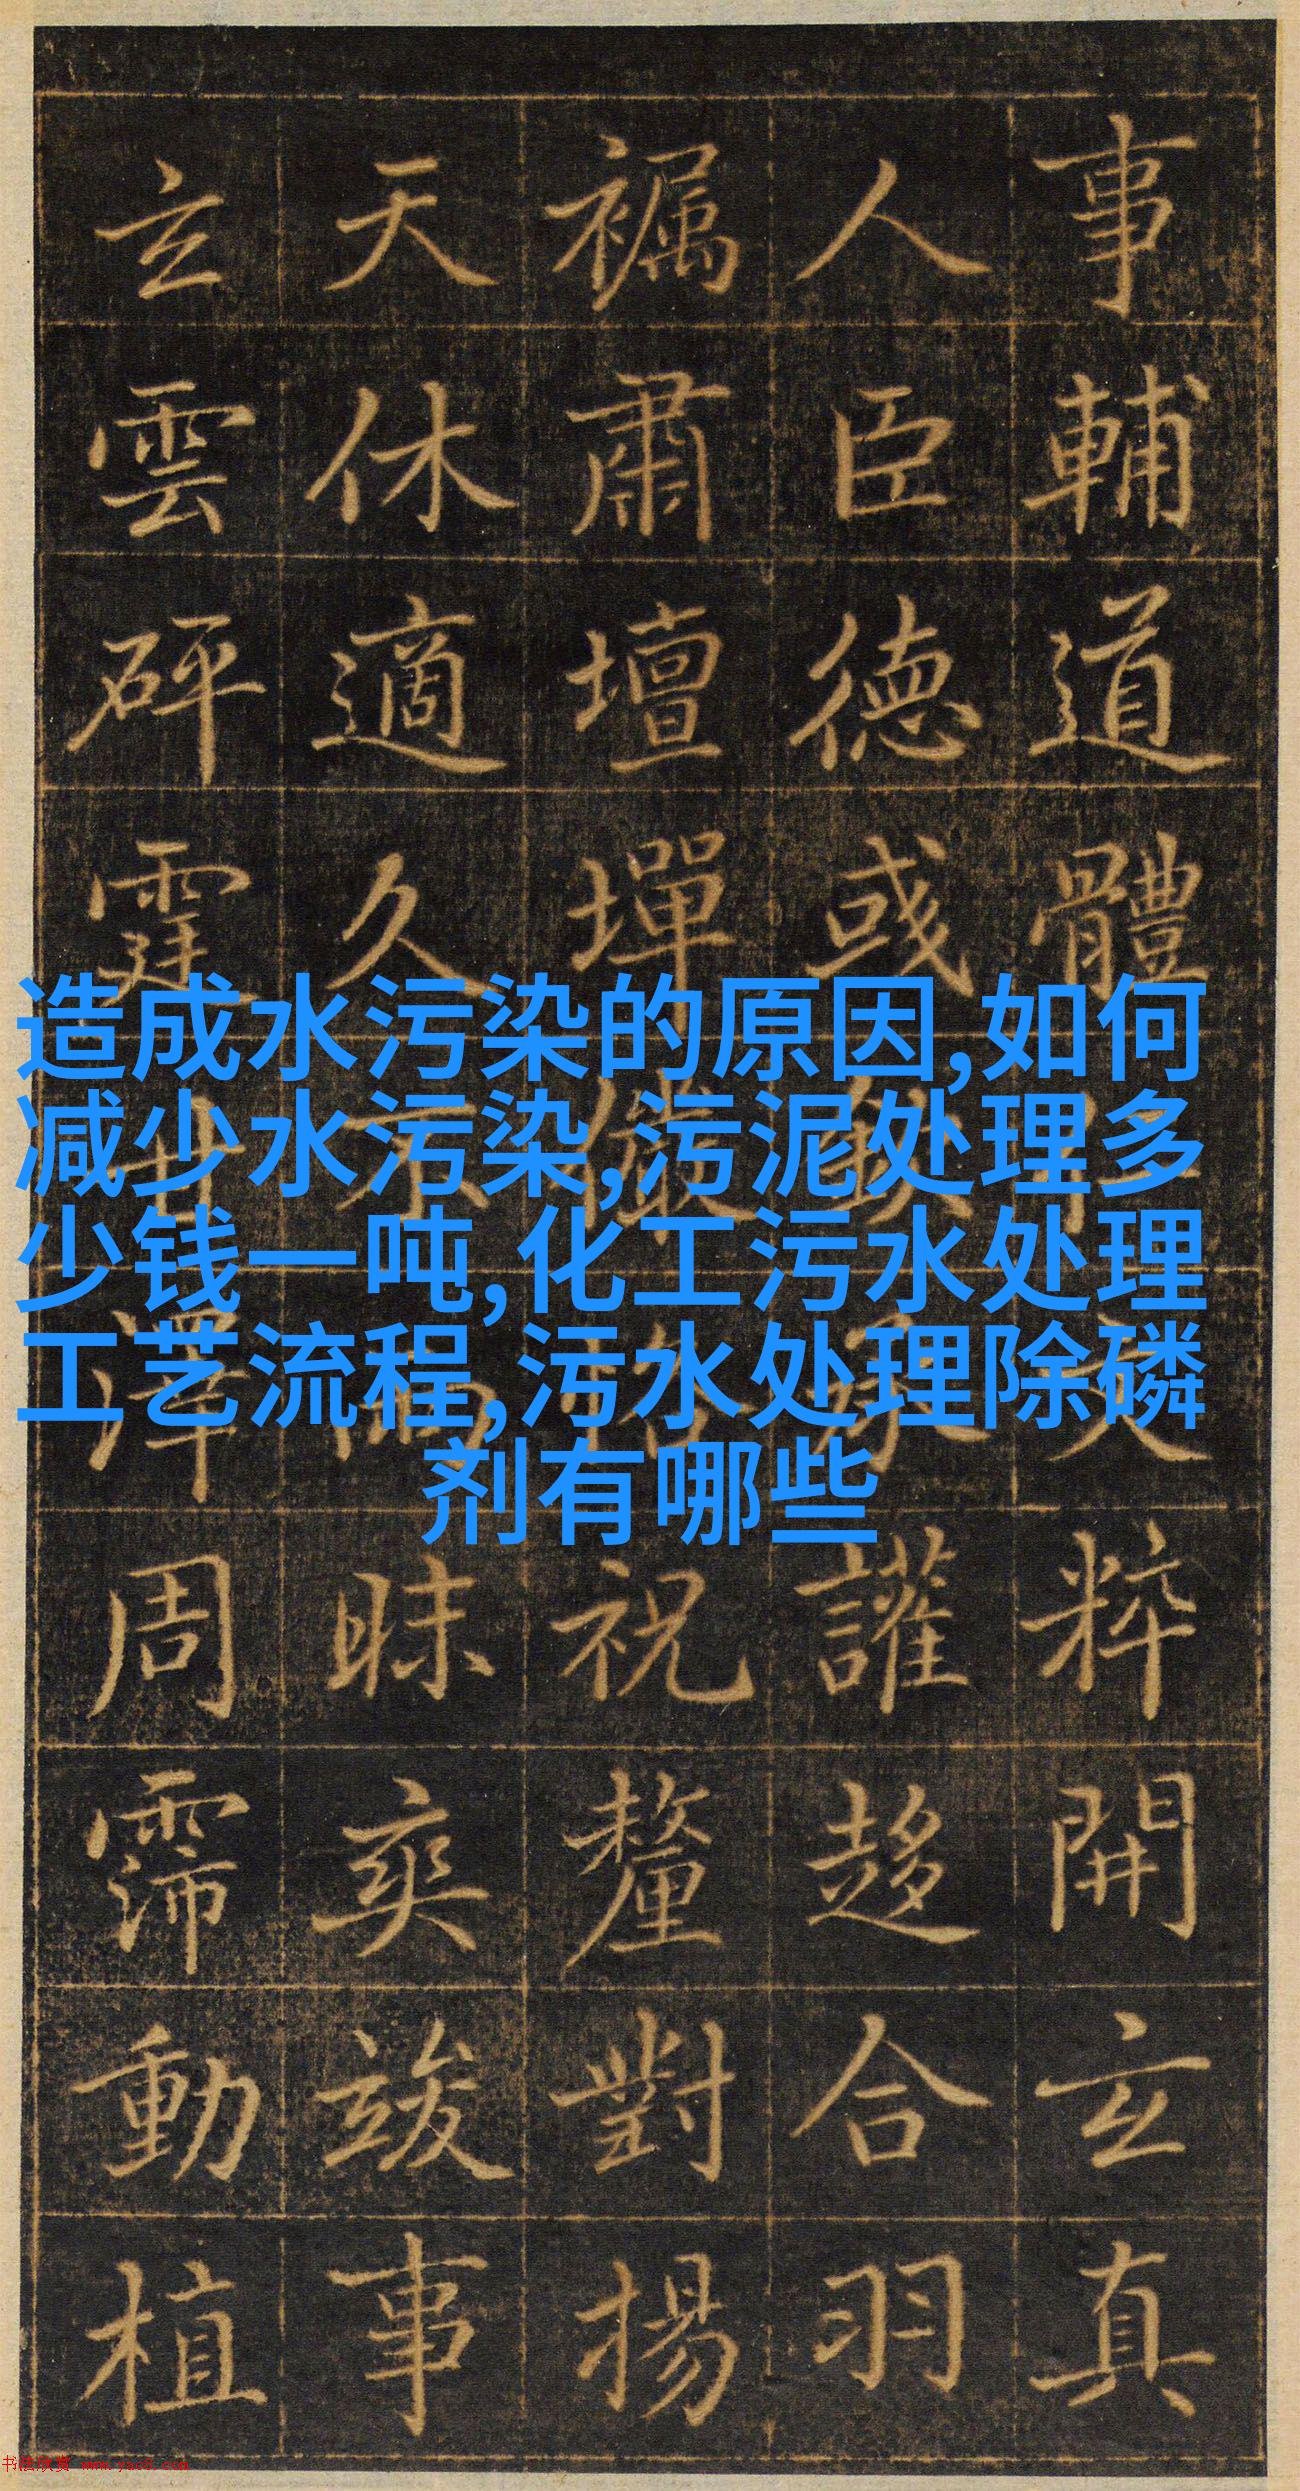 造成水污染的原因,如何
减少水污染,污泥处理多
少钱一吨,化工污水处理
工艺流程,污水处理除磷
剂有哪些
事輔道體文粹開玄真
人臣德或讙趍合羽
褵肅壇墠祝釐對揚
天休適久不雨昧爽竣事
玄雲砰霆甘澤周霈動植
书法欣赏 www.yac8.com